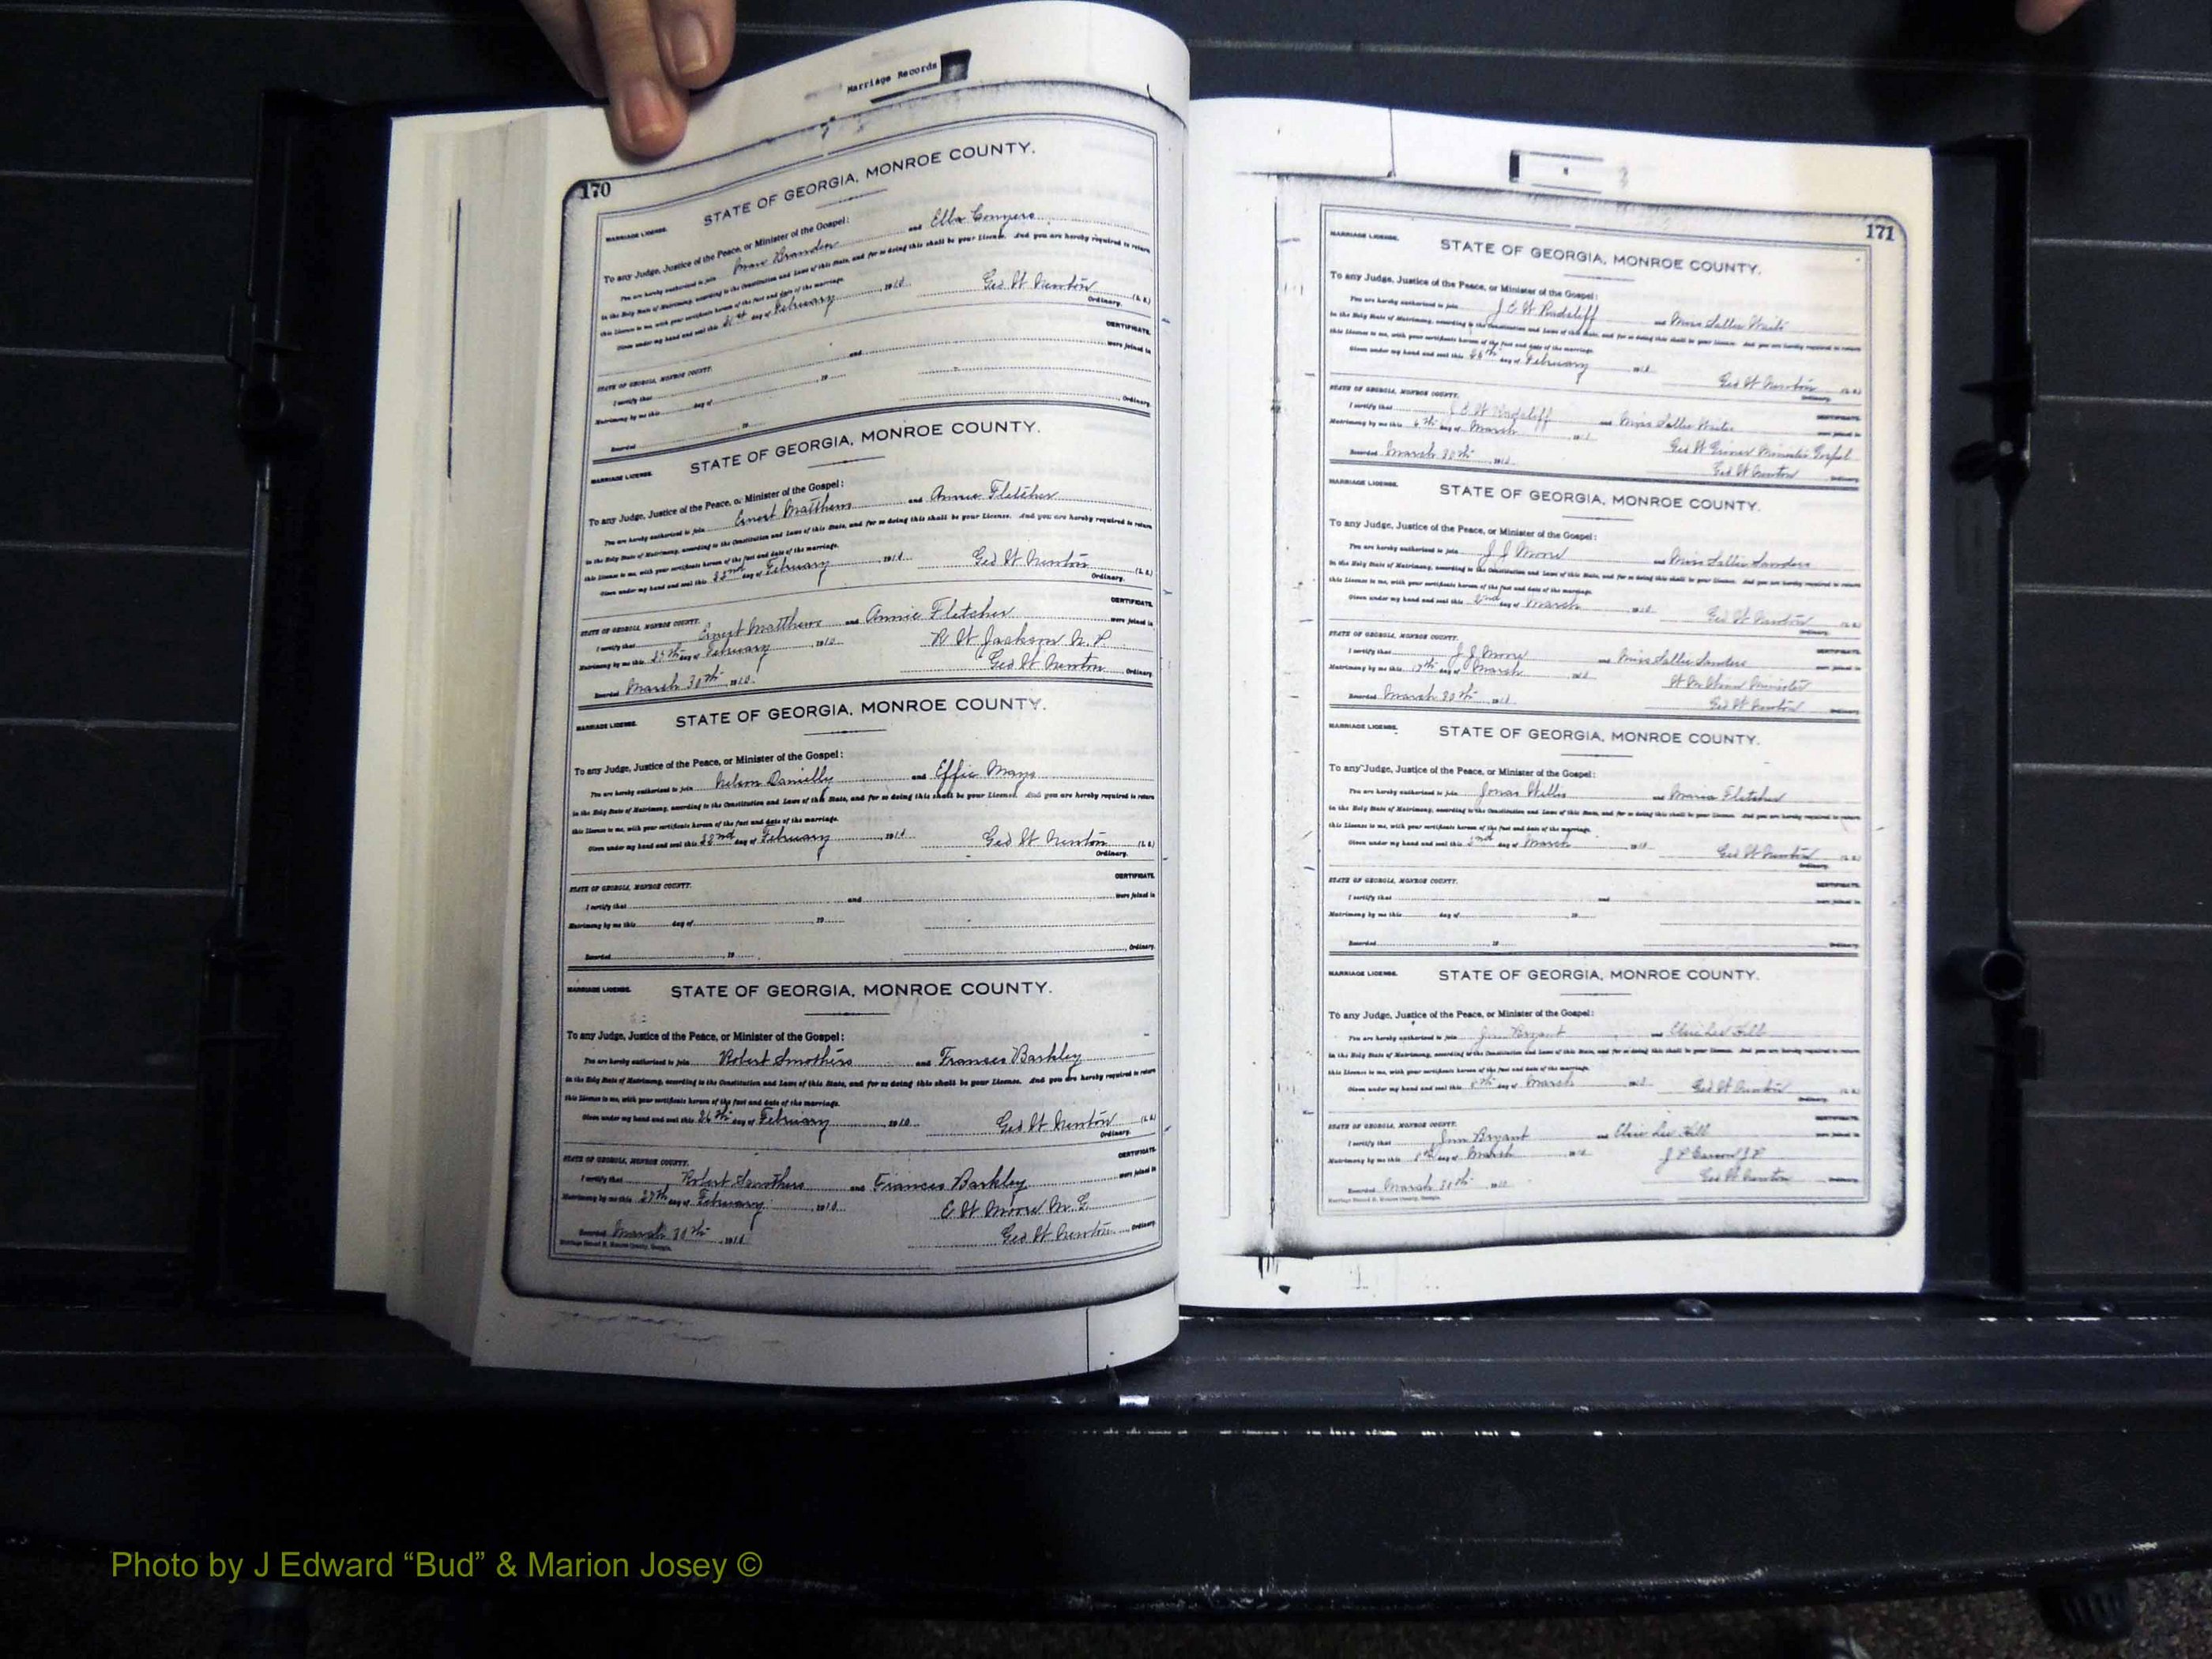 Marriage Records
170
STATE OF GEORGIA, MONROE COUNTY.
MARRIAGE LICENSE.
To any Judge, Justice of the Peace, or Minister of the Gospel:
You are hereby authorized to join and Ella Conyers
in the Holy State of Matrimony, according to the Constitution and Laws of this State, and for so doing this shall be your License. And you are hereby required to return
this License to me, with your certificate hereon of the fact and date of the marriage.
Given under my hand and seal this day of February, 1910. Geo W Newton (L. S.)
Ordinary.
CERTIFICATE.
STATE OF GEORGIA, MONROE COUNTY.
I certify that and were joined in
Matrimony by me this day of , 19
Recorded , 19 , Ordinary.
STATE OF GEORGIA, MONROE COUNTY.
MARRIAGE LICENSE.
To any Judge, Justice of the Peace, or Minister of the Gospel:
You are hereby authorized to join Ernest Matthews and Annie Fletcher
in the Holy State of Matrimony, according to the Constitution and Laws of this State, and for so doing this shall be your License. And you are hereby required to return
this License to me, with your certificate hereon of the fact and date of the marriage.
Given under my hand and seal this 22nd day of February, 1910. Geo W Newton (L. S.)
Ordinary.
CERTIFICATE.
STATE OF GEORGIA, MONROE COUNTY.
I certify that Ernest Matthews and Annie Fletcher were joined in
Matrimony by me this day of February, 1910. R W Jackson N. P.
Recorded March 30th, 1910. Geo W Newton, Ordinary.
STATE OF GEORGIA, MONROE COUNTY.
MARRIAGE LICENSE.
To any Judge, Justice of the Peace, or Minister of the Gospel:
You are hereby authorized to join Nelson Danielly and Effie Mays
in the Holy State of Matrimony, according to the Constitution and Laws of this State, and for so doing this shall be your License. And you are hereby required to return
this License to me, with your certificate hereon of the fact and date of the marriage.
Given under my hand and seal this 22nd day of February, 1910. Geo W Newton (L. S.)
Ordinary.
CERTIFICATE.
STATE OF GEORGIA, MONROE COUNTY.
I certify that and were joined in
Matrimony by me this day of , 19
Recorded , 19 , Ordinary.
MARRIAGE LICENSE. STATE OF GEORGIA, MONROE COUNTY.
To any Judge, Justice of the Peace, or Minister of the Gospel:
You are hereby authorized to join Robert Smothers and Frances Barkley
in the Holy State of Matrimony, according to the Constitution and Laws of this State, and for so doing this shall be your License. And you are hereby required to return
this License to me, with your certificate hereon of the fact and date of the marriage.
Given under my hand and seal this 26th day of February, 1910. Geo W Newton (L. S.)
Ordinary.
CERTIFICATE.
STATE OF GEORGIA, MONROE COUNTY.
I certify that Robert Smothers and Frances Barkley were joined in
Matrimony by me this 27th day of February, 1910. E W Moore M. G.
Recorded March 30th, 1910. Geo W Newton, Ordinary.
171
MARRIAGE LICENSE. STATE OF GEORGIA, MONROE COUNTY.
To any Judge, Justice of the Peace, or Minister of the Gospel:
You are hereby authorized to join J E W Radcliff and Miss Sallie
in the Holy State of Matrimony, according to the Constitution and Laws of this State, and for so doing this shall be your License. And you are hereby required to return
this License to me, with your certificate hereon of the fact and date of the marriage.
Given under my hand and seal this day of February 1910. Geo W Newton (L. S.)
Ordinary.
CERTIFICATE.
STATE OF GEORGIA, MONROE COUNTY.
I certify that J E W Radcliff and Miss Sallie were joined in
Matrimony by me this 6th day of March, 1910. Geo W Minister Gospel
Recorded March 30th, 1910. Geo W Newton, Ordinary.
MARRIAGE LICENSE. STATE OF GEORGIA, MONROE COUNTY.
To any Judge, Justice of the Peace, or Minister of the Gospel:
You are hereby authorized to join J J Moore and Miss Sallie Sanders
in the Holy State of Matrimony, according to the Constitution and Laws of this State, and for so doing this shall be your License. And you are hereby required to return
this License to me, with your certificate hereon of the fact and date of the marriage.
Given under my hand and seal this 2nd day of March 1910. Geo W Newton (L. S.)
Ordinary.
CERTIFICATE.
STATE OF GEORGIA, MONROE COUNTY.
I certify that J J Moore and Miss Sallie Sanders were joined in
Matrimony by me this day of March 1910. Minister
Recorded March 30th, 1910. Geo W Newton, Ordinary.
MARRIAGE LICENSE. STATE OF GEORGIA, MONROE COUNTY.
To any Judge, Justice of the Peace, or Minister of the Gospel:
You are hereby authorized to join Jonas Willis and Maria Fletcher
in the Holy State of Matrimony, according to the Constitution and Laws of this State, and for so doing this shall be your License. And you are hereby required to return
this License to me, with your certificate hereon of the fact and date of the marriage.
Given under my hand and seal this day of March 1910. Geo W Newton (L. S.)
Ordinary.
CERTIFICATE.
STATE OF GEORGIA, MONROE COUNTY.
I certify that and were joined in
Matrimony by me this day of , 19
Recorded , 19 , Ordinary.
MARRIAGE LICENSE. STATE OF GEORGIA, MONROE COUNTY.
To any Judge, Justice of the Peace, or Minister of the Gospel:
You are hereby authorized to join Bryant and Lee Hill
in the Holy State of Matrimony, according to the Constitution and Laws of this State, and for so doing this shall be your License. And you are hereby required to return
this License to me, with your certificate hereon of the fact and date of the marriage.
Given under my hand and seal this day of March 1910. Geo W Newton (L. S.)
Ordinary.
CERTIFICATE.
STATE OF GEORGIA, MONROE COUNTY.
I certify that Bryant and Lee Hill were joined in
Matrimony by me this day of March 1910. J P
Recorded March 30th, 1910. Geo W Newton, Ordinary.
Photo by J Edward “Bud” & Marion Josey ©